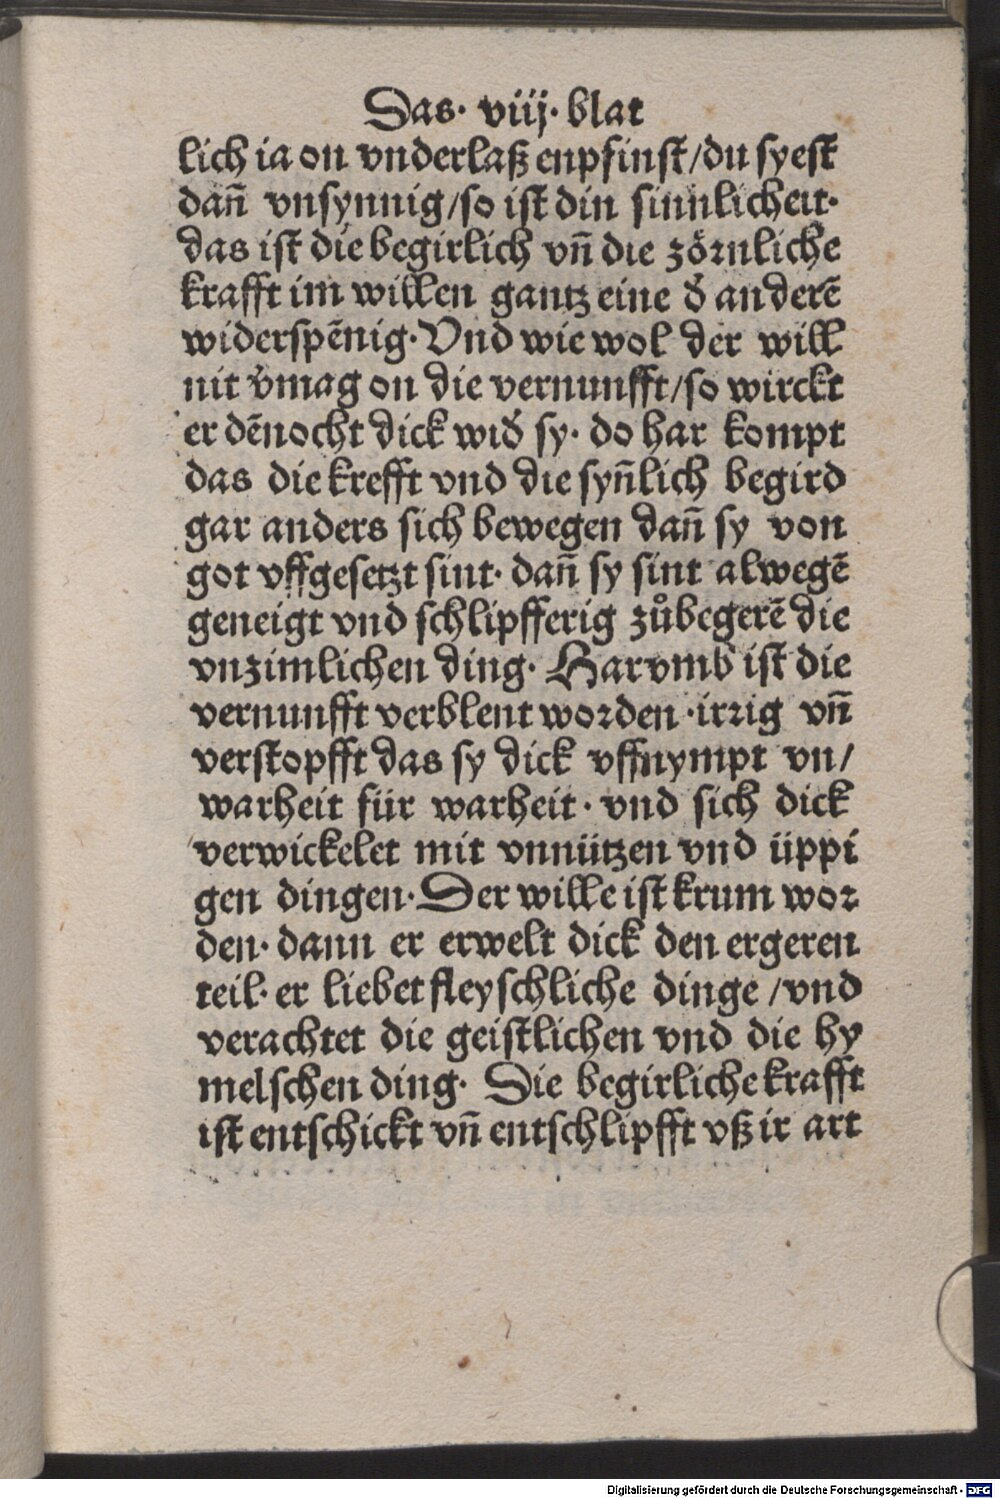 Das· viij· blat
lich ia on vnderlaß enpfinst/du syest
dañ vnsynnig/so ist din sinnlicheit·
das ist die begirlich vñ die zörnliche
krafft im willen gantz eine d̕ anderē
widerspēnig· Vnd wie wol der will
nit v̕mag on die vernunfft/so wirckt
er dēnocht dick wid̕ sy· do har kompt
das die krefft vnd die syñlich begird
gar anders sich bewegen dañ sy von
got vffgesetzt sint· dañ sy sint alwegē
geneigt vnd schlipfferig zůbegerē die
vnzimlichen ding· Harvmb ist die
vernunfft verblent worden ·irrig vñ
verstopfft das sy dick vffnympt vn/
warheit für warheit· vnd sich dick
verwickelet mit vnnützen vnd üppi
gen dingen· Der wille ist krum wor
den· dann er erwelt dick den ergeren
teil· er liebet fleyschliche dinge /vnd
verachtet die geistlichen vnd die hy
melschen ding· Die begirliche krafft
ist entschickt vñ entschlipfft vß ir art
Digitalisierung gefördert durch die Deutsche Forschungsgemeinschaft - DFG